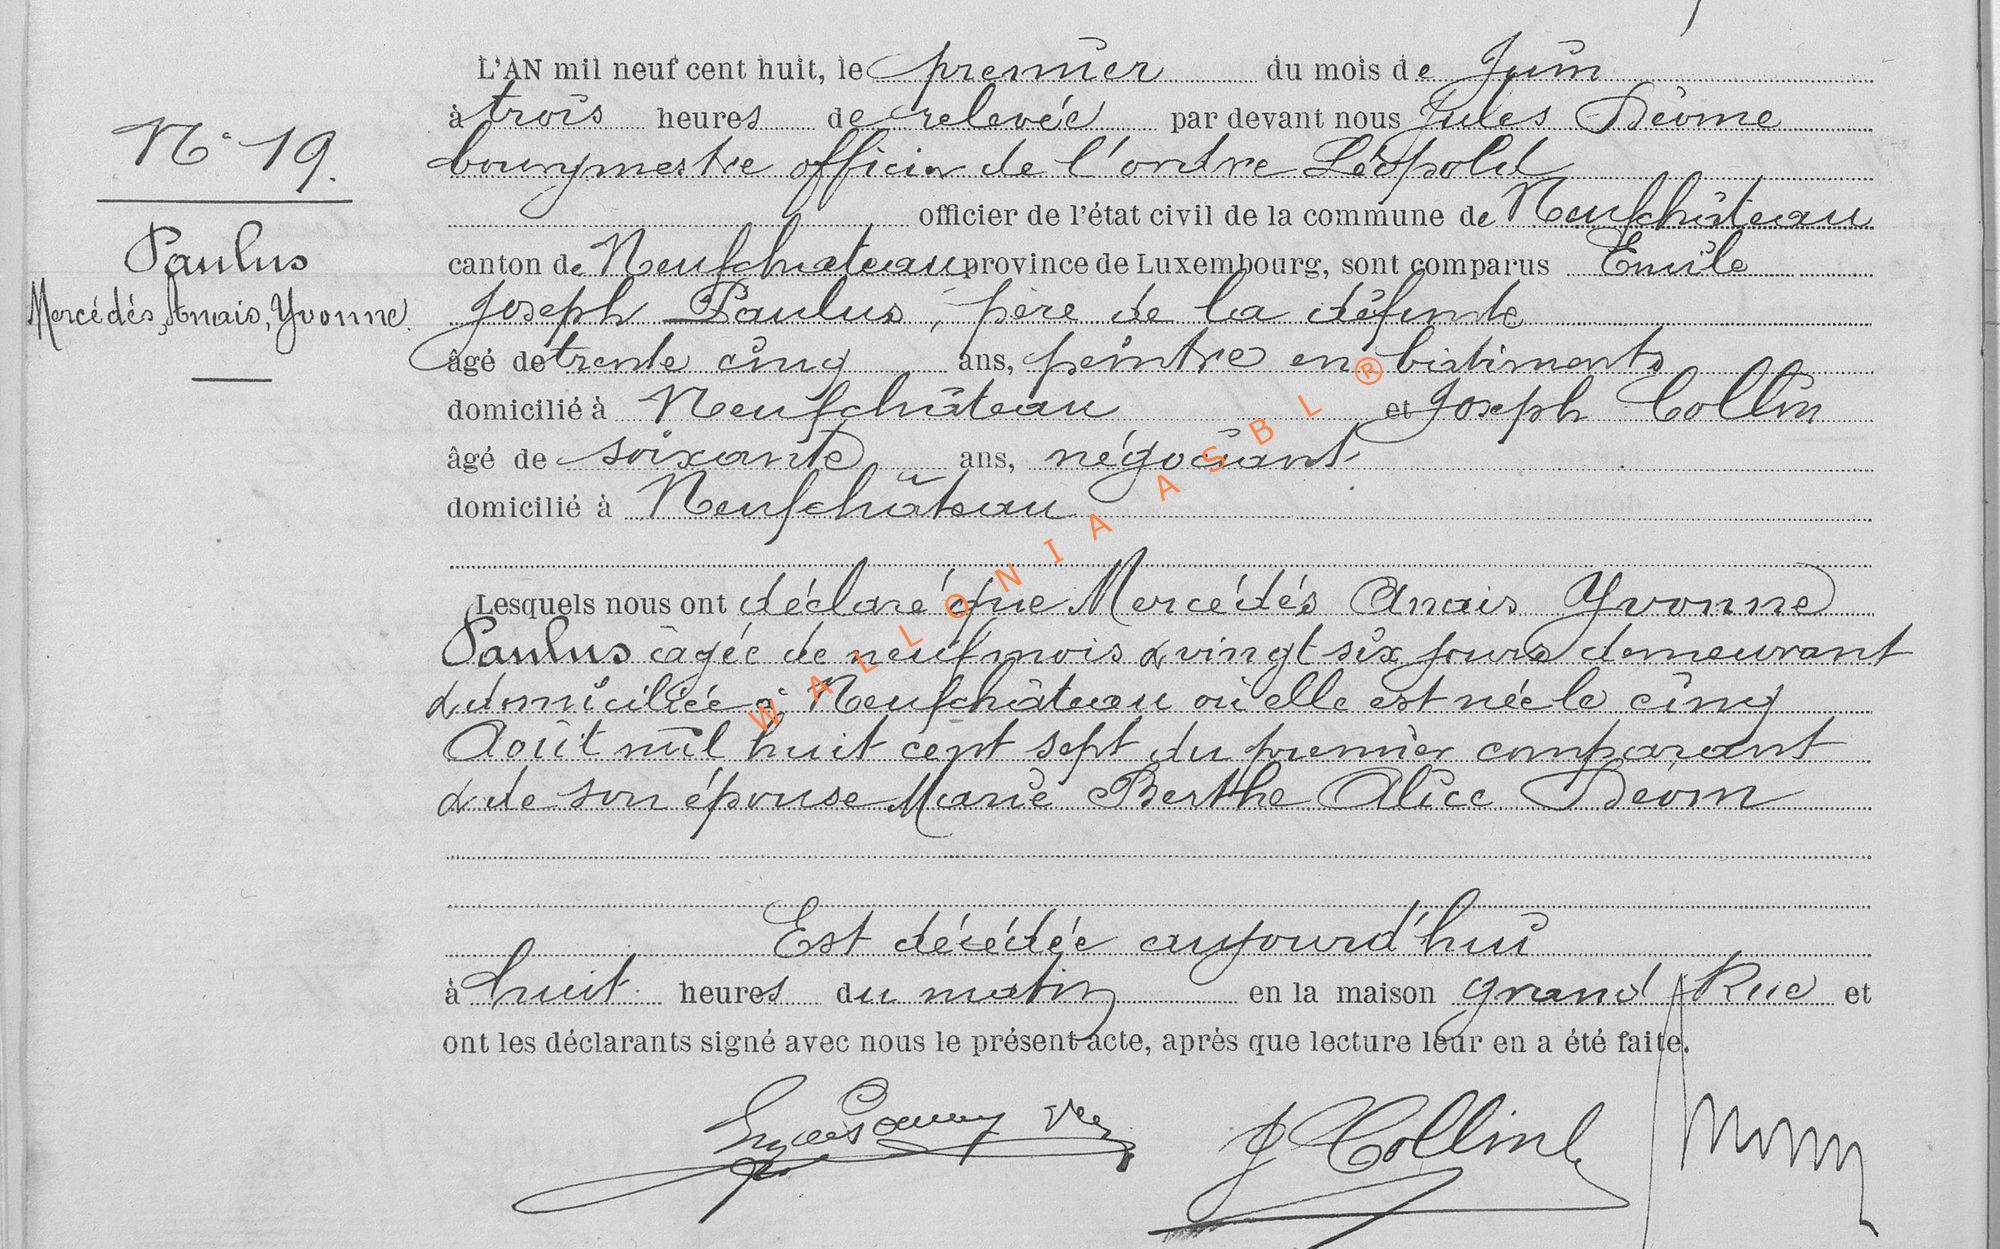 L'AN mil neuf cent huit, le premier du mois de Juin
à trois heures de relevée par devant nous Jules Déome
N° 19.
bourgmestre officier de l'ordre Léopold
officier de l'état civil de la commune de Neufchâteau
Paulus
canton de Neufchateau province de Luxembourg, sont comparus Emile
Mercédès, Anais, Yvonne.
Joseph Paulus, père de la défunte
âgé de trente cinq ans, peintre en bâtiments
domicilié à Neufchâteau et Joseph Collin
âgé de soixante ans, négociant
domicilié à Neufchâteau
Lesquels nous ont déclaré que Mercédés Anais Yvonne
Paulus âgée de neuf mois & vingt six jours demeurant
& domiciliée à Neufchâteau où elle est née le cinq
Août mil huit cent sept du premier comparant
& de son épouse Marie Berthe Alice Déom
Est décédée aujourd'hui
à huit heures du matin en la maison grand Rue et
ont les déclarants signé avec nous le présent acte, après que lecture leur en a été faite.
J Collin
WALLONIA ASBL ®